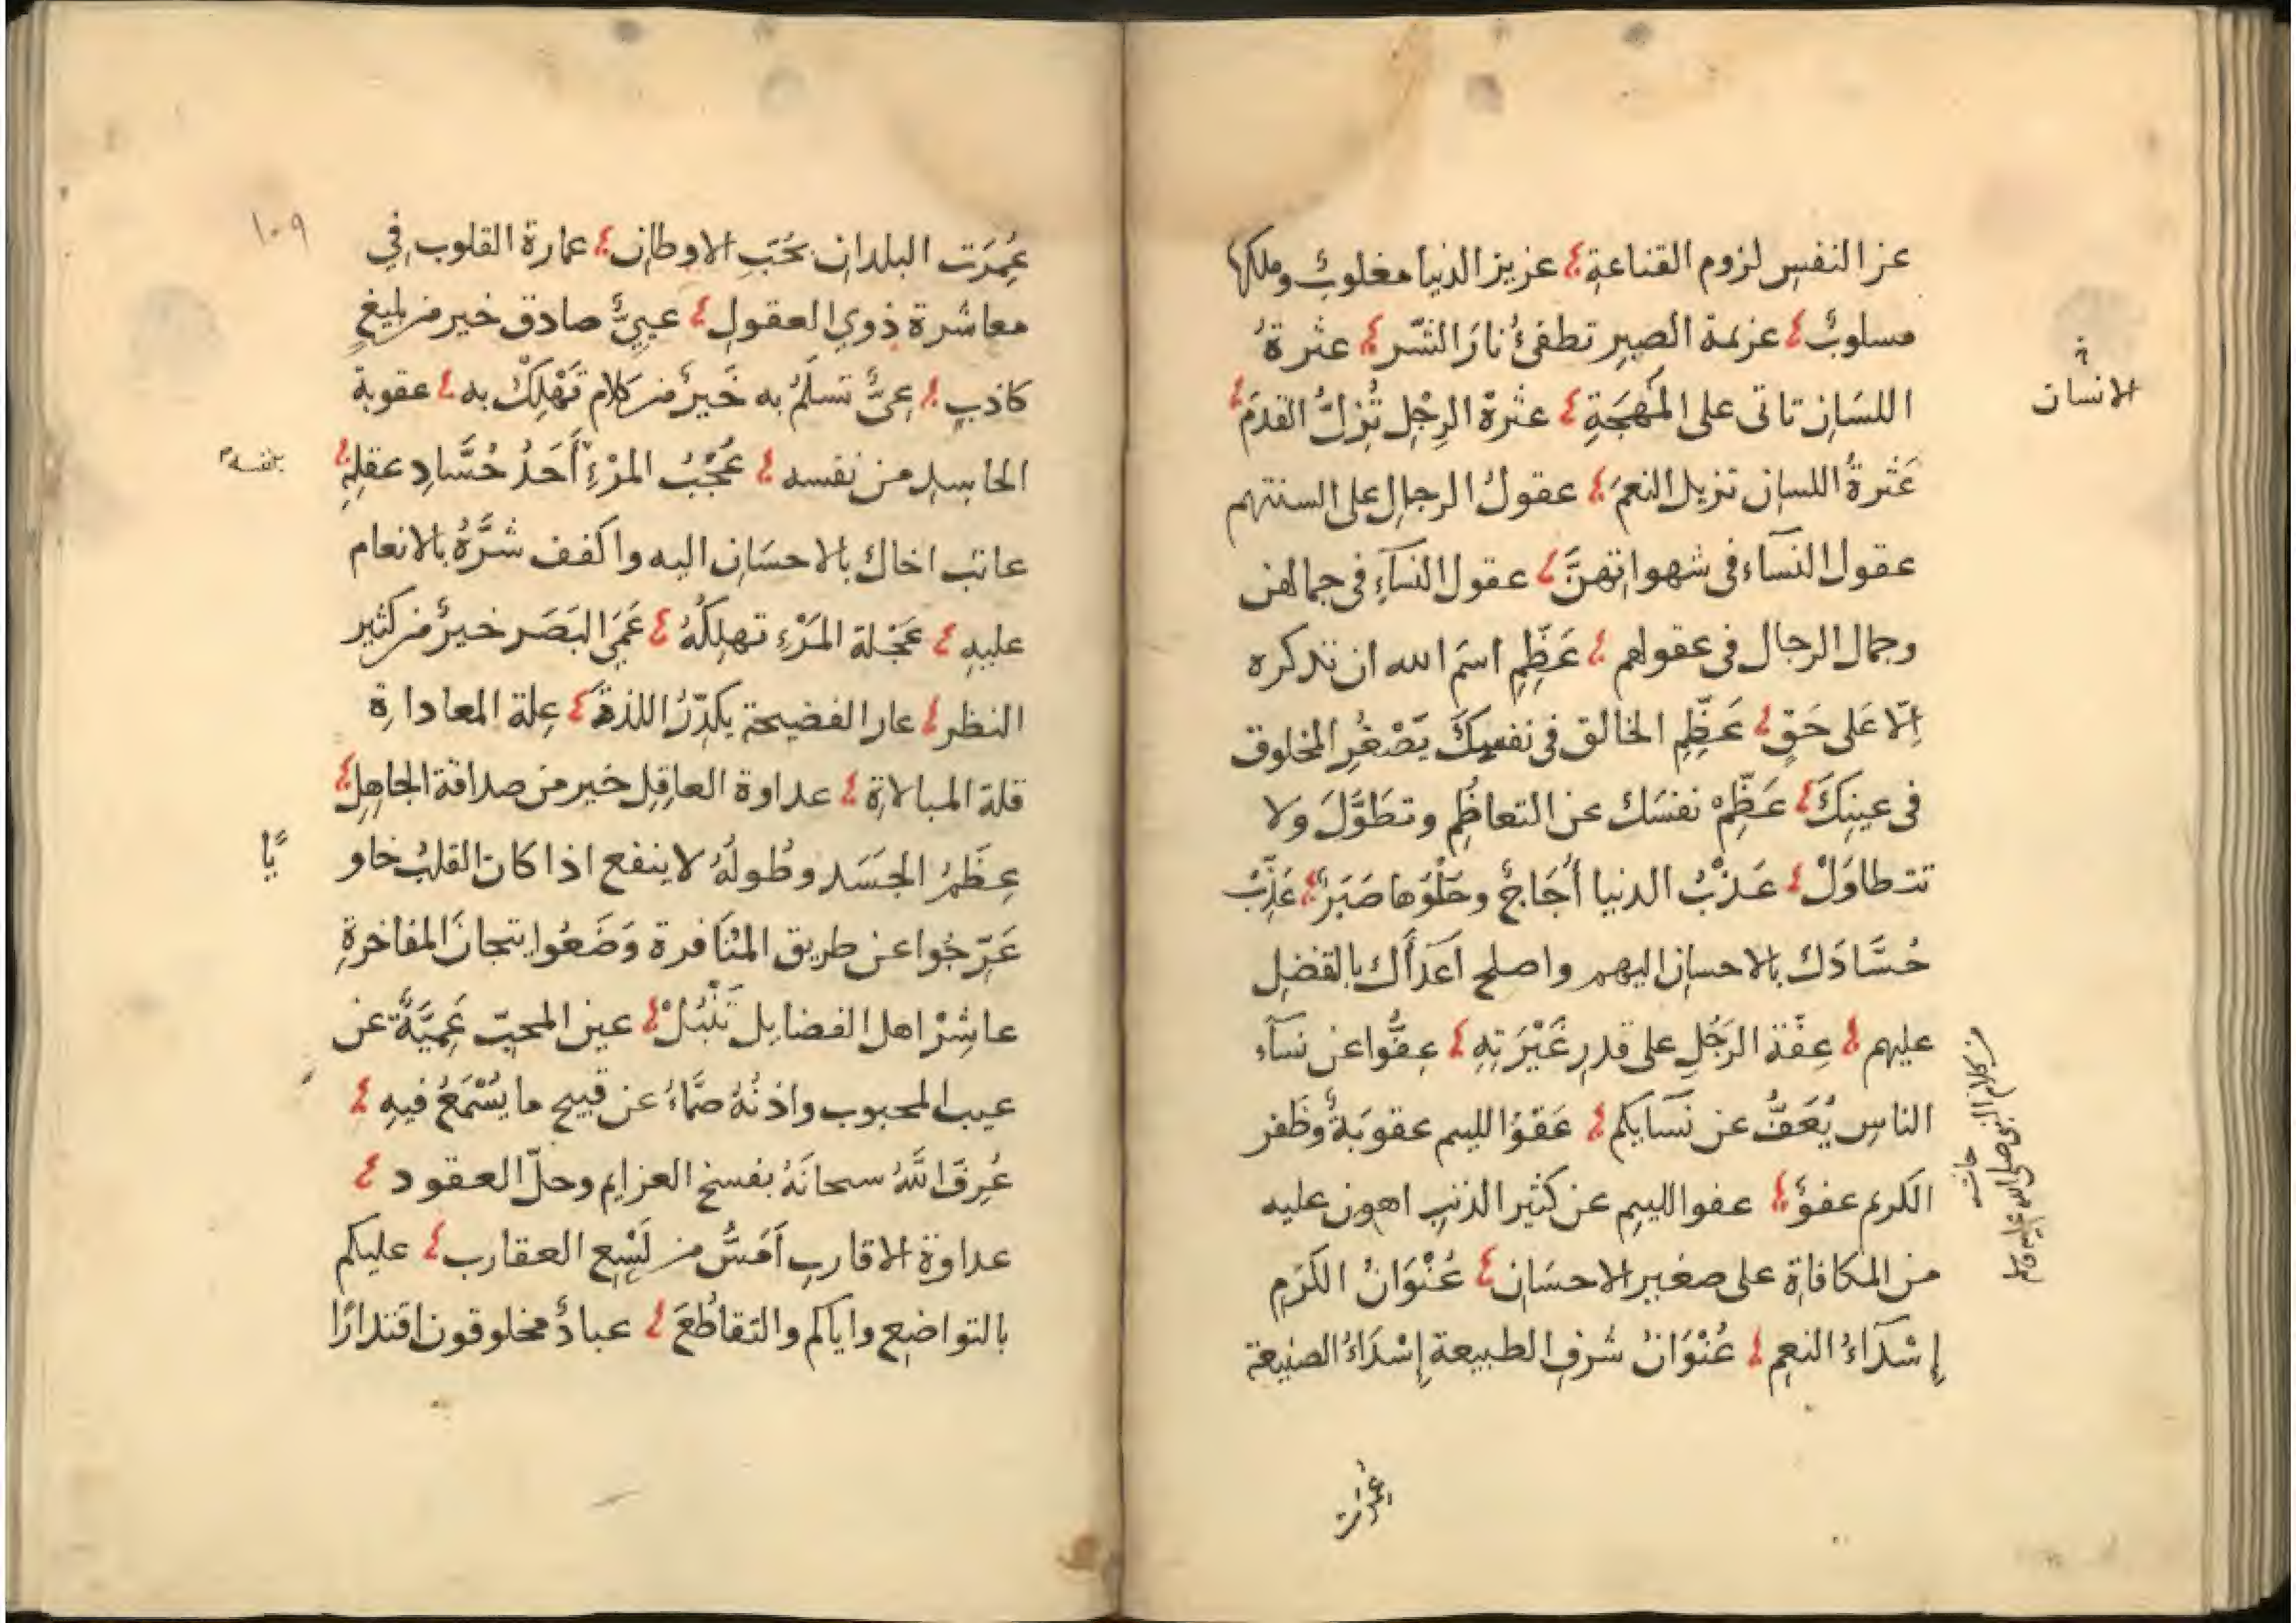 عز النفسِ لزوم القناعةِ ؛ عزيز الدنيا مغلوبٌ وملكها
مسلوبٌ ؛ عزيمة الصبرِ تطفئُ نارَ الشّر ؛ عثرةُ
اللسَانِ تاتى على المُهجَةِ ؛ عثرةُ الرِجْلِ تُزِلُّ القدَمَ ؛
عَثرةُ اللسان تزيل النعمَ ؛ عقولُ الرجالِ على السنتهم
عقول النسآء فى شهواتِهنَّ ؛ عقول النسآءِ فى جمالهن
وجمال الرجال فى عقولهم ؛ عَظِّمِ اسمَ الله ان تذكره
اِلّا عَلى حَقٍ ؛ عَظِّمِ الخالق فى نفسِكَ يَصْغُرِ المخلوق
فى عينِكَ ؛ عَظِّمْ نفسَك عن التعاظُمِ وتطَوَّلَ ولا
تتطاوَلْ ؛ عَذْبُ الدنيا أُجَاجٌ وحُلْوُها صَبَرٌ ؛ عَذِّبْ
حُسَّادَكَ بالاحسانِ اليهم واصلح اعَدآَك بالفضلِ
عليهم ؛ عِفّة الرَجُلِ على قدرِ غَيْرَتِهِ ؛ عِفُّوا عن نسآء
الناسِ يُعَفُّ عن نسَايكم ؛ عَفوُ اللييم عقوبَةٌ وظَفر
الكريم عفوٌ ؛ عفو اللييمِ عن كثير الذنبِ اهون عليه
من المكافاةِ على صغير الاحسَانِ ؛ عُنْوَانُ الكرَمِ
إسْدَآءُ النعمِ ؛ عُنْوَانُ شرفِ الطبيعة إِسْدَاءُ الصنيعة
الانسان
من كلام النبي صلى الله عليه وسلم
عمرت
١٠٩
عُمِرَت البلدان بحُبِّ الاوطان ؛ عمارة القلوب فِي
معاشرة ذوي العقول ؛ عييٌّ صادق خير من بليغٍ
كاذبٍ ؛ عِىٌّ تسلَمُ به خَيرٌ من كلام تَهْلِكُ به ؛ عقوبة
الحاسِدِ من نفسه ؛ عُجْبُ المرْءِ أَحَدُ حُسَّادِ عقلِهِ ؛
بنفسه
عاتب اخاك بالاحسَانِ اليه واكفف شرَّهُ بالانعام
عليهِ ؛ عَجْلة المَرْءِ تهلِكُهُ ؛ عَمَى البَصَر خيرٌ من كثير
النظر ؛ عار الفضيحة يكدِّرُ اللذةَ ؛ عِلة المعاداةِ
قلة المبالاةِ ؛ عداوة العاقِلِ خير من صداقة الجاهِلِ ؛
عِظَمُ الجسَد وطُولُهُ لا ينفع اذا كان القلبُ خاو
يًا
عَرِّجُوا عن طريق المُنَافرة وَضَعُوا تيجانَ المفاخرةِ
عاشِرْ اهل الفضايل تَنْبُلْ ؛ عين المحبّ عَمِيَّةٌ عن
عيب المحبوب واذنُهُ صَمّاءُ عن قبيح ما يُسْمَعُ فيهِ ؛
عُرِفَ اللَّهُ سبحانَهُ بفسخِ العزايمِ وحلّ العقود ؛
عداوة الاقاربِ اَمَسُّ من لَسْعِ العقارب ؛ عليكم
بالتواضع واياكم والتقاطُعَ ؛ عبادٌ مخلوقون اقتدارًا